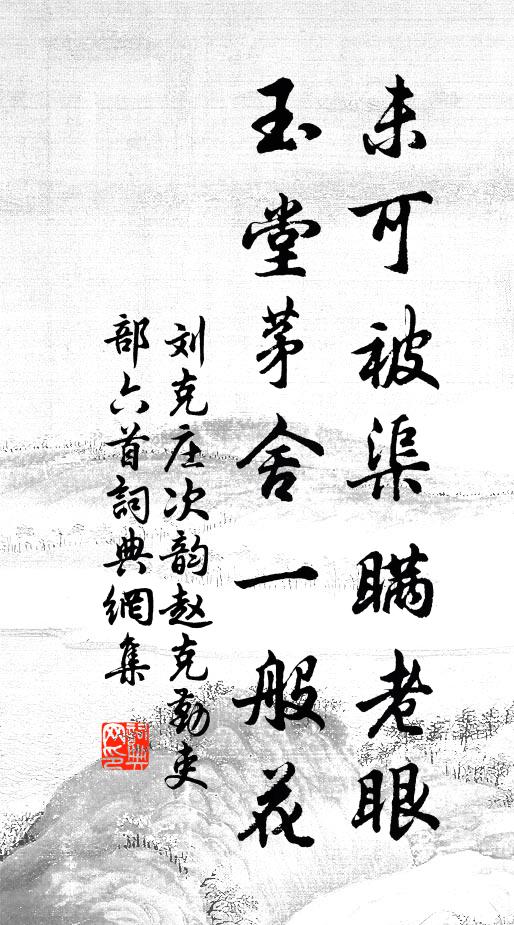 未可被渠瞞老眼
玉堂茅舍一般花
刘克庄次韵赵克勤吏
部六首詞典網集